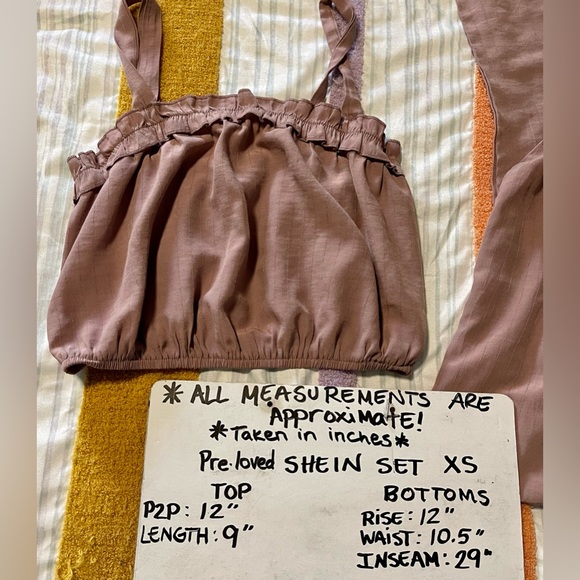 * ALL MEASUREMENTS ARE
Approximate!
*Taken in inches*
Pre-loved SHEIN SET XS
TOP
P2P: 12"
LENGTH: 9"
BOTTOMS
RISE: 12"
WAIST: 10.5"
INSEAM: 29"